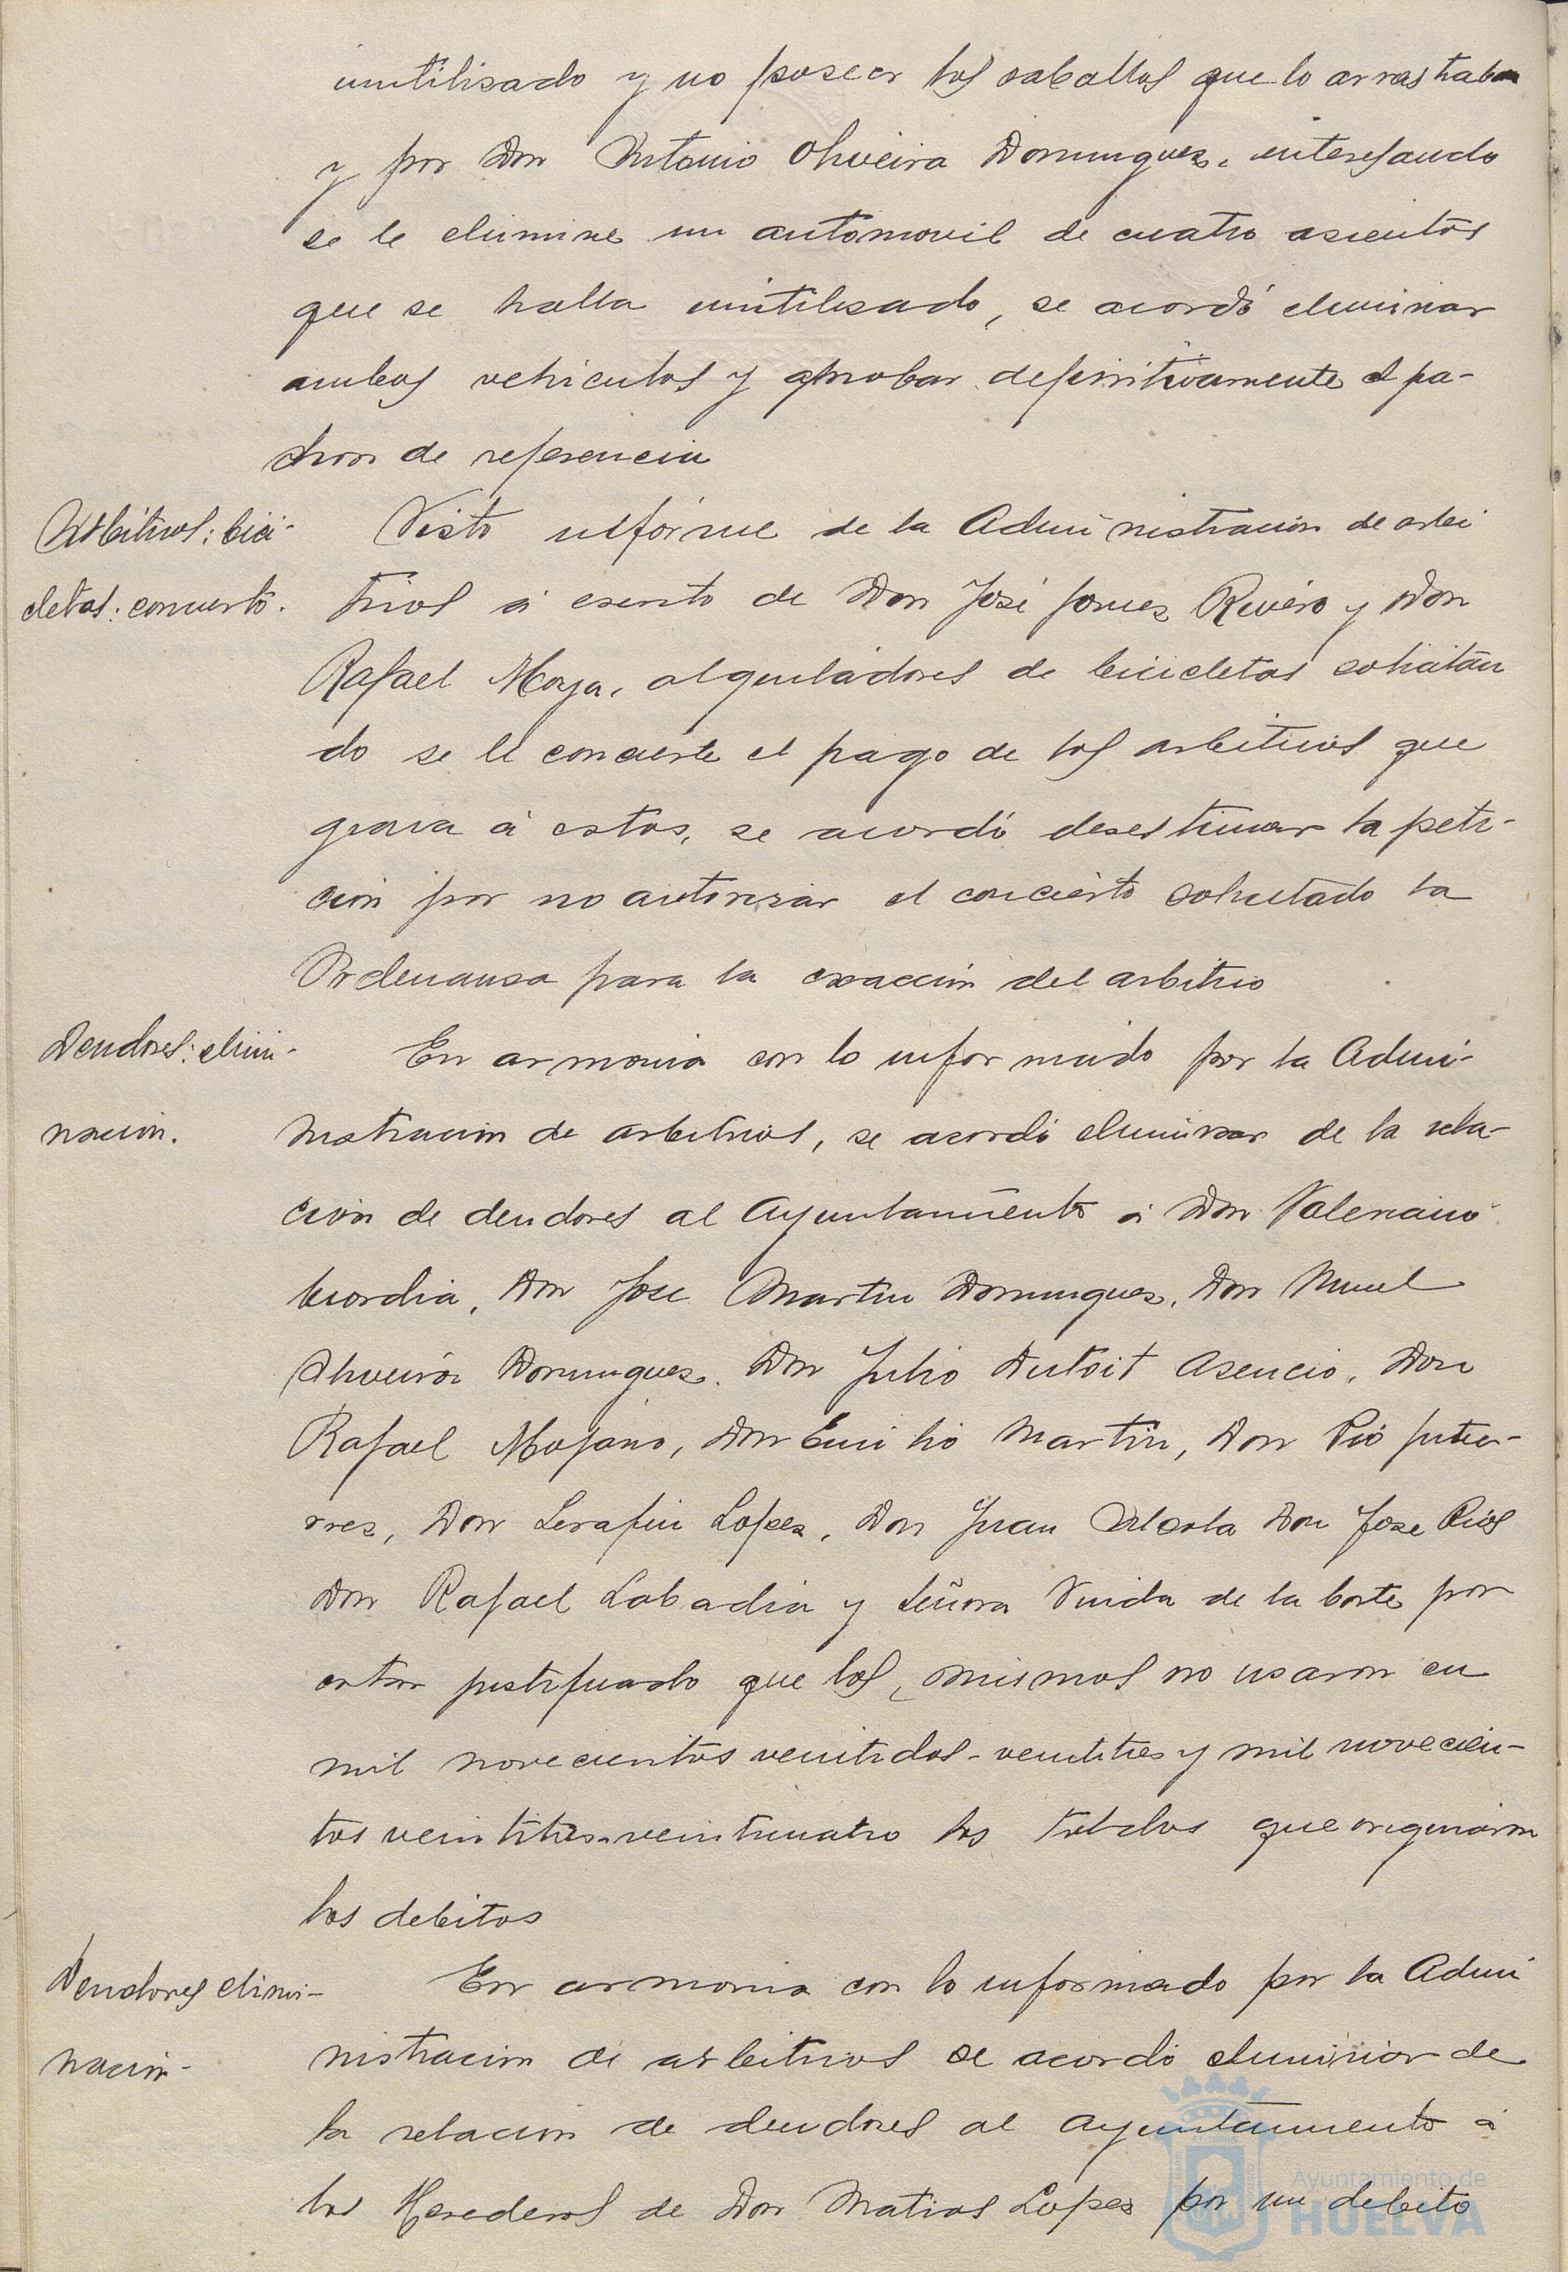 inutilizado y no poseer los caballos que lo arrastaban
y por Don Antonio Oliveira Dominguez, interesando
se le elimine un automovil de cuatro asientos
que se halla inutilizado, se acordó eliminar
ambos vehiculos y aprobar definitivamente el pa-
dron de referencia
Arbitrios: bici-
cletas: concierto.
Visto informe de la Administracion de arbi
trios á escrito de Don José Gomez Rivero y Don
Rafael Moya, alquiladores de bicicletas solicitan
do se le concierte el pago de los arbitrios que
grava á estas, se acordó desestimar la peti-
cion por no autorizar el concierto solicitado la
Ordenanza para la exaccion del arbitrio
Deudores: elimi-
nacion.
En armonia con lo informado por la Admi-
nistracion de arbitrios, se acordó eliminar de la rela-
cion de deudores al Ayuntamiento á Don Valeriano
Don Jose Martin Dominguez, Don
Oliveira Dominguez. Don Julio Dutoit Asencio, Don
Rafael Mojano, Don Emilio Martin, Don Pió Gutie-
rrez, Don Serafin Lopez, Don Juan Don Jose Rios
Don Rafael Labadia y Señora Viuda de la Corte por
estar justificado que los mismos no usaron en
mil novecientos veintidos-veintitres y mil novecien-
tos veintitres-veinticuatro los toldos que originaron
los debitos
Deudores elimi-
nacion-
En armonia con lo informado por la Admi
nistracion de arbitrios se acordó eliminar de
la relacion de deudores al Ayuntamiento á
los Herederos de Don Matias Lopez por un debito
Ayuntamiento de
HUELVA